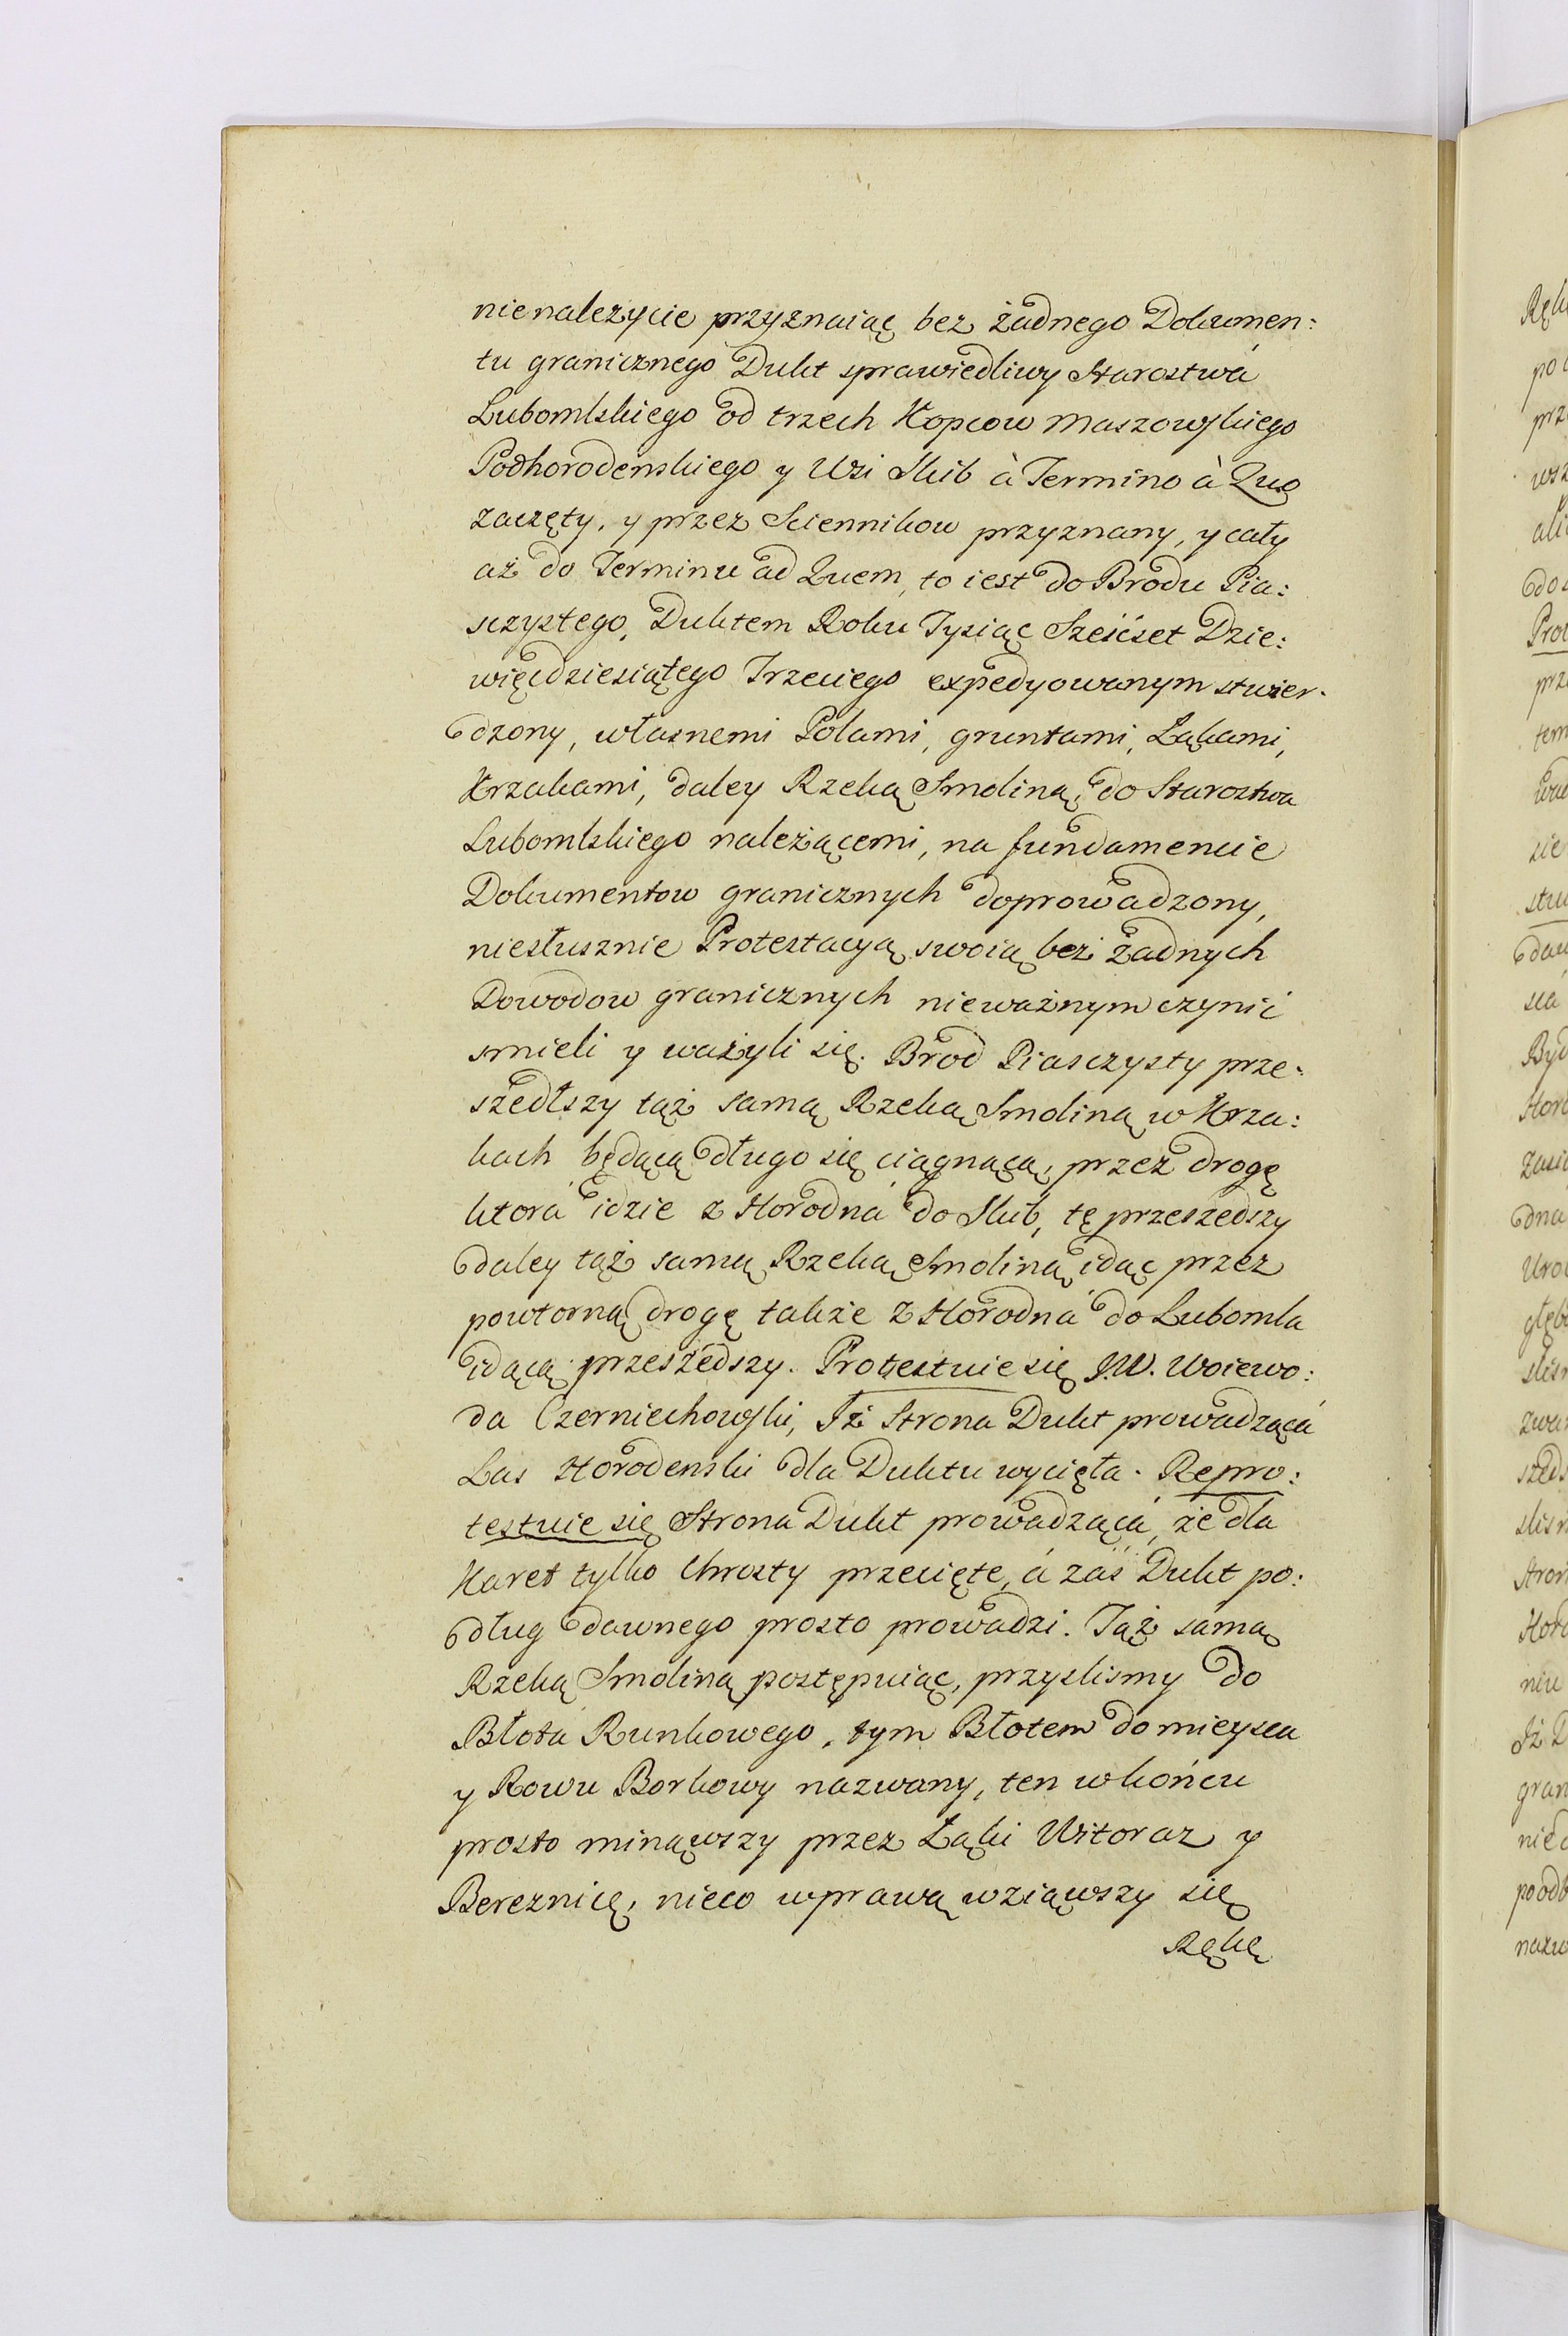 nienależycie przyznaiąc bez żadnego Dokumen:
tu granicznego Dukt sprawiedliwy Starostwá
Lubomlskiego od trzech Kopcow Maszowskiego
Podhorodenskiego y Wsi Słub à Termino à Quo
zaczęty, y przez Sciennikow przyznany, y cały
aż do Terminu ad Quem, to iest do Brodu Pia:
sczystego, Duktem Roku Tysiąc Sześćset Dzie:
więćdziesiątego Trzeciego expedyowanym stwier-
dzony, własnemi Polami, gruntami, Łąkami,
Krzakami, daley Rzeką Smoliną, do Starostwa
Lubomlskiego należącemi, na fundamencie
Dokumentow granicznych doprowadzony,
niesłusznie Protestacyą swoią bez żadnych
Dowodow granicznych nieważnym czynić
smieli y ważyli się. Brod Piasczysty prze-
szedłszy tąż samą Rzeką Smoliną w Krza:
kach będącą długo się ciągnącą, przez drogę
ktorá idzie z Horodná do Słub, tę przeszedszy
daley tąż samą Rzeką Smoliną idąc przez
powtorną drogę także z Horodná do Lubomla
idącą przeszedszy. Protestuie się J.W. Woiewo:
da Czerniechowski, Iż Strona Dukt prowadzącá
Las Horodenski dla Duktu wycięła. Repro:
testuie się Strona Dukt prowadzącá, że dla
Karet tylko Chrosty przecięte, á zaś Dukt po:
dług dawnego prosto prowadzi. Tąż samą
Rzeką Smoliną postępuiąc, przyslismy do
Błota Runkowego, tym Błotem do mieysca
y Rowu Borkowy nazwany, ten w końcu
prosto minąwszy przez Łąki Witoraz y
Bereznicę, nieco wprawą wziąwszy się
Rękę